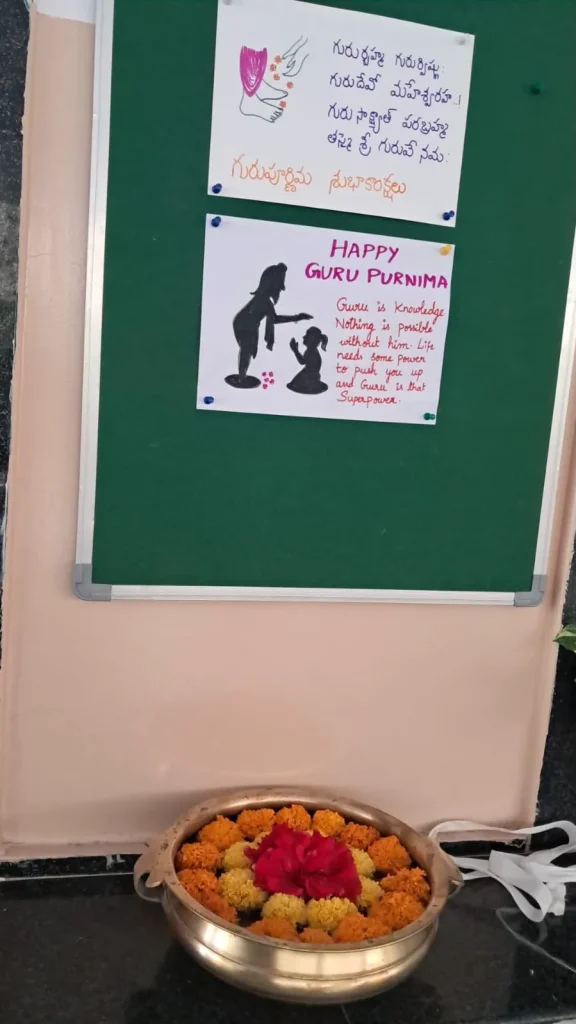 గురుర్బ్రహ్మ గురుర్విష్ణు:
గురుదేవో మహేశ్వరహ..!
గురు సాక్ష్యాత్ పరబ్రహ్మ
తస్మై శ్రీ గురువే నమ:
గురుపూర్ణిమ శుభాకాంక్షలు
HAPPY
GURU PURNIMA
Guru is Knowledge
Nothing is possible
without him. Life
needs some power
to push you up
and Guru is that
Superpower.